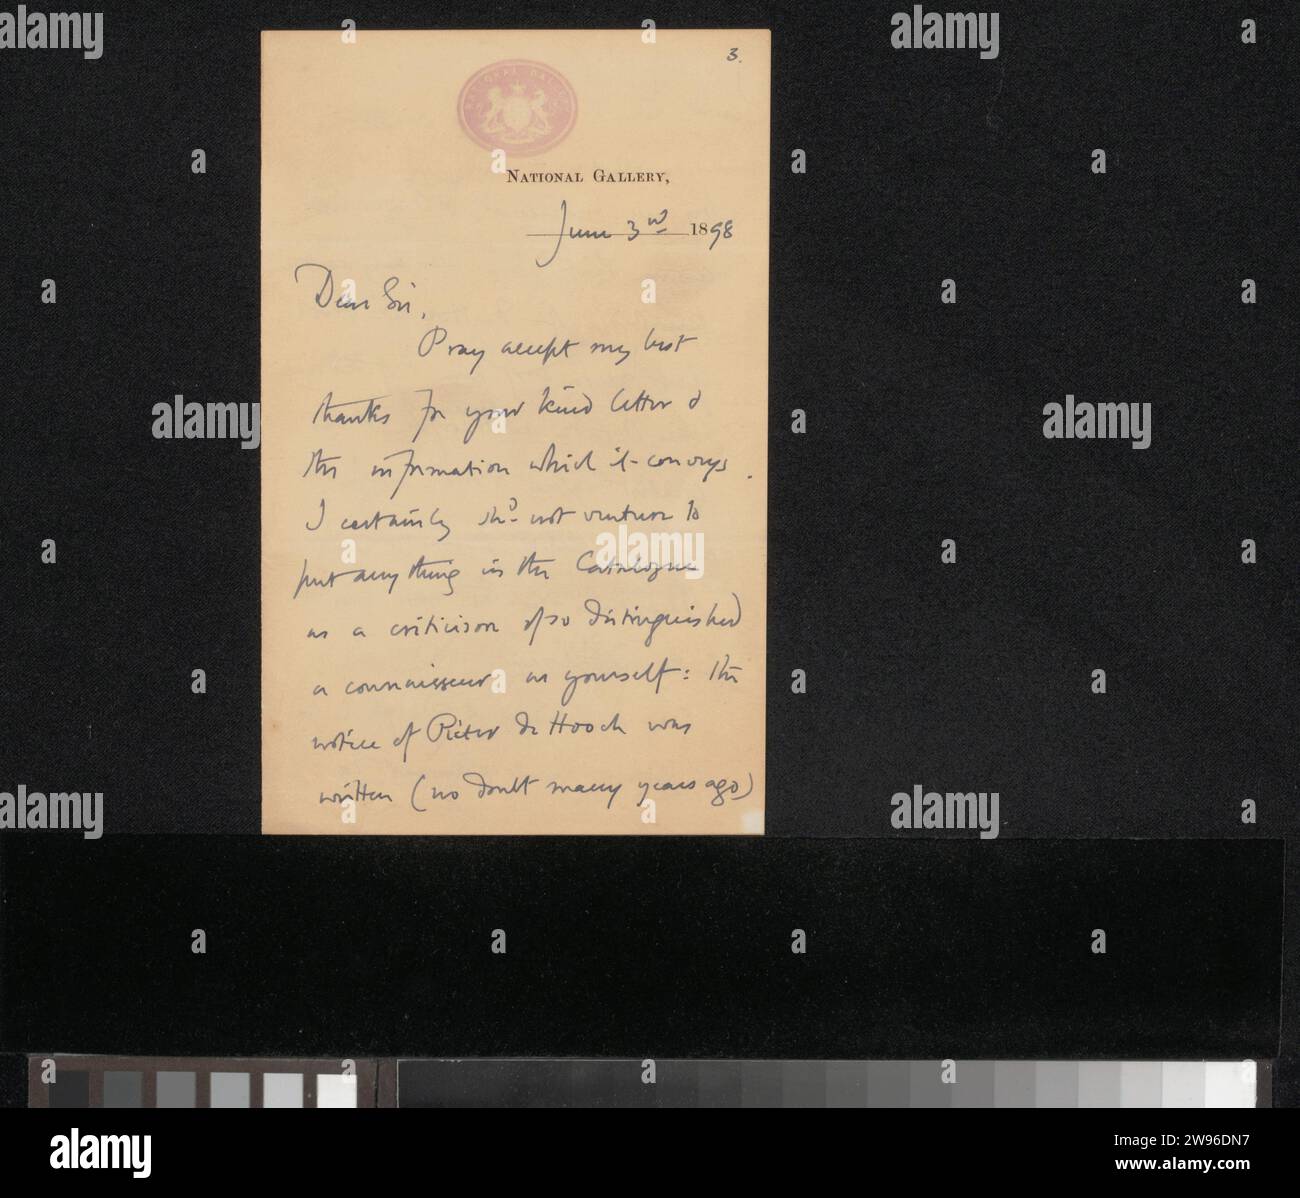 3.
NATIONAL GALLERY
NATIONAL GALLERY,
June 3rd 1898
Dear Sir,
Pray accept my best
thanks for your kind letter &
the information which it conveys.
I certainly shd. not venture to
put anything in the Catalogue
as a criticism of so distinguished
a connaisseur as yourself: the
notice of Pieter de Hooch was
written (no doubt many years ago)
alamy
alamy
Image ID: 2W96DN7
www.alamy.com